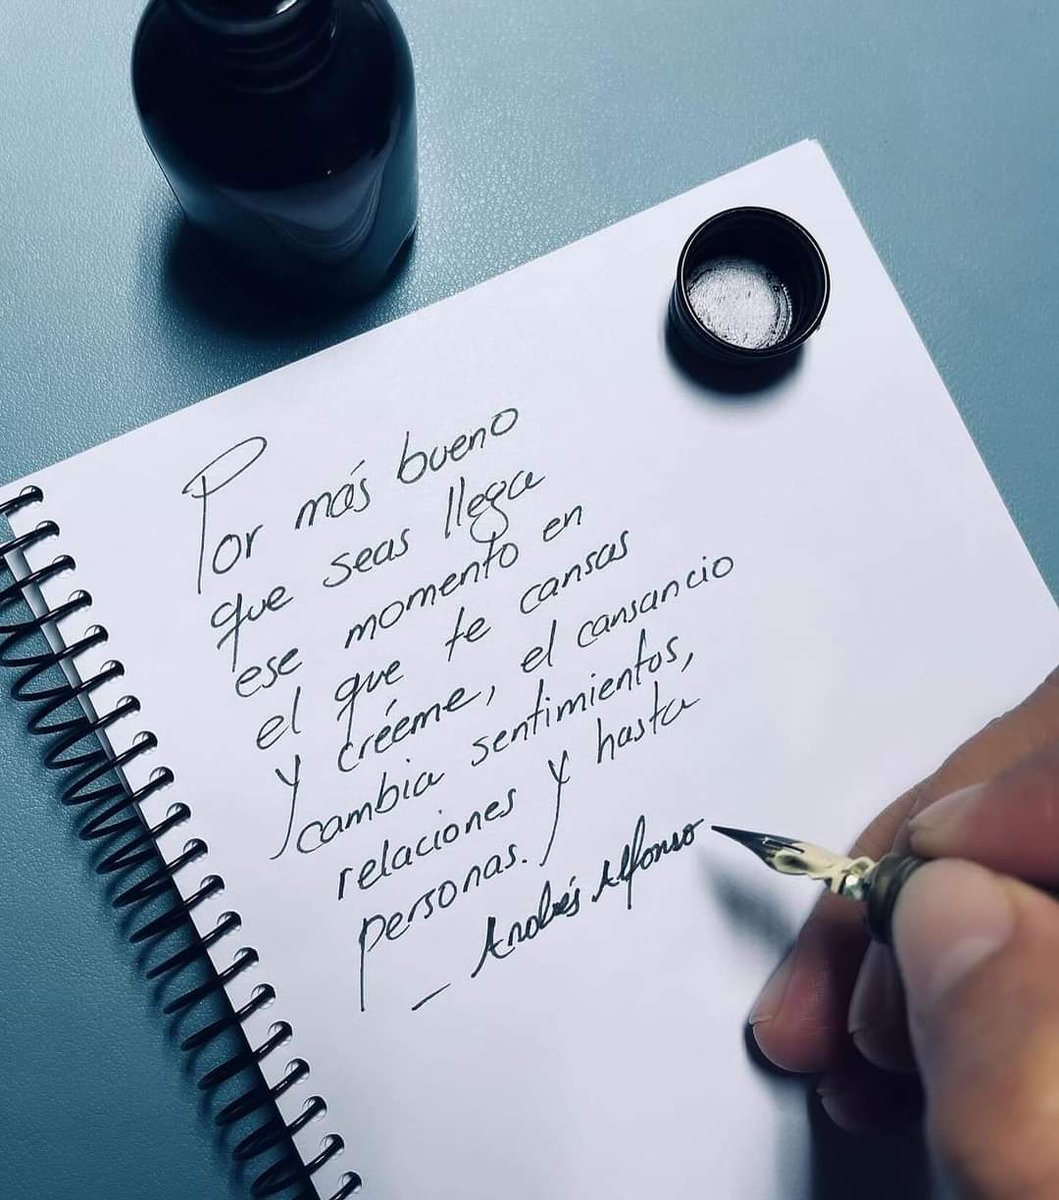 Por más bueno
que seas llega
ese momento en
el que te cansas
y créeme, el cansancio
cambia sentimientos,
relaciones y hasta
personas.
_ Andrés Alfonso